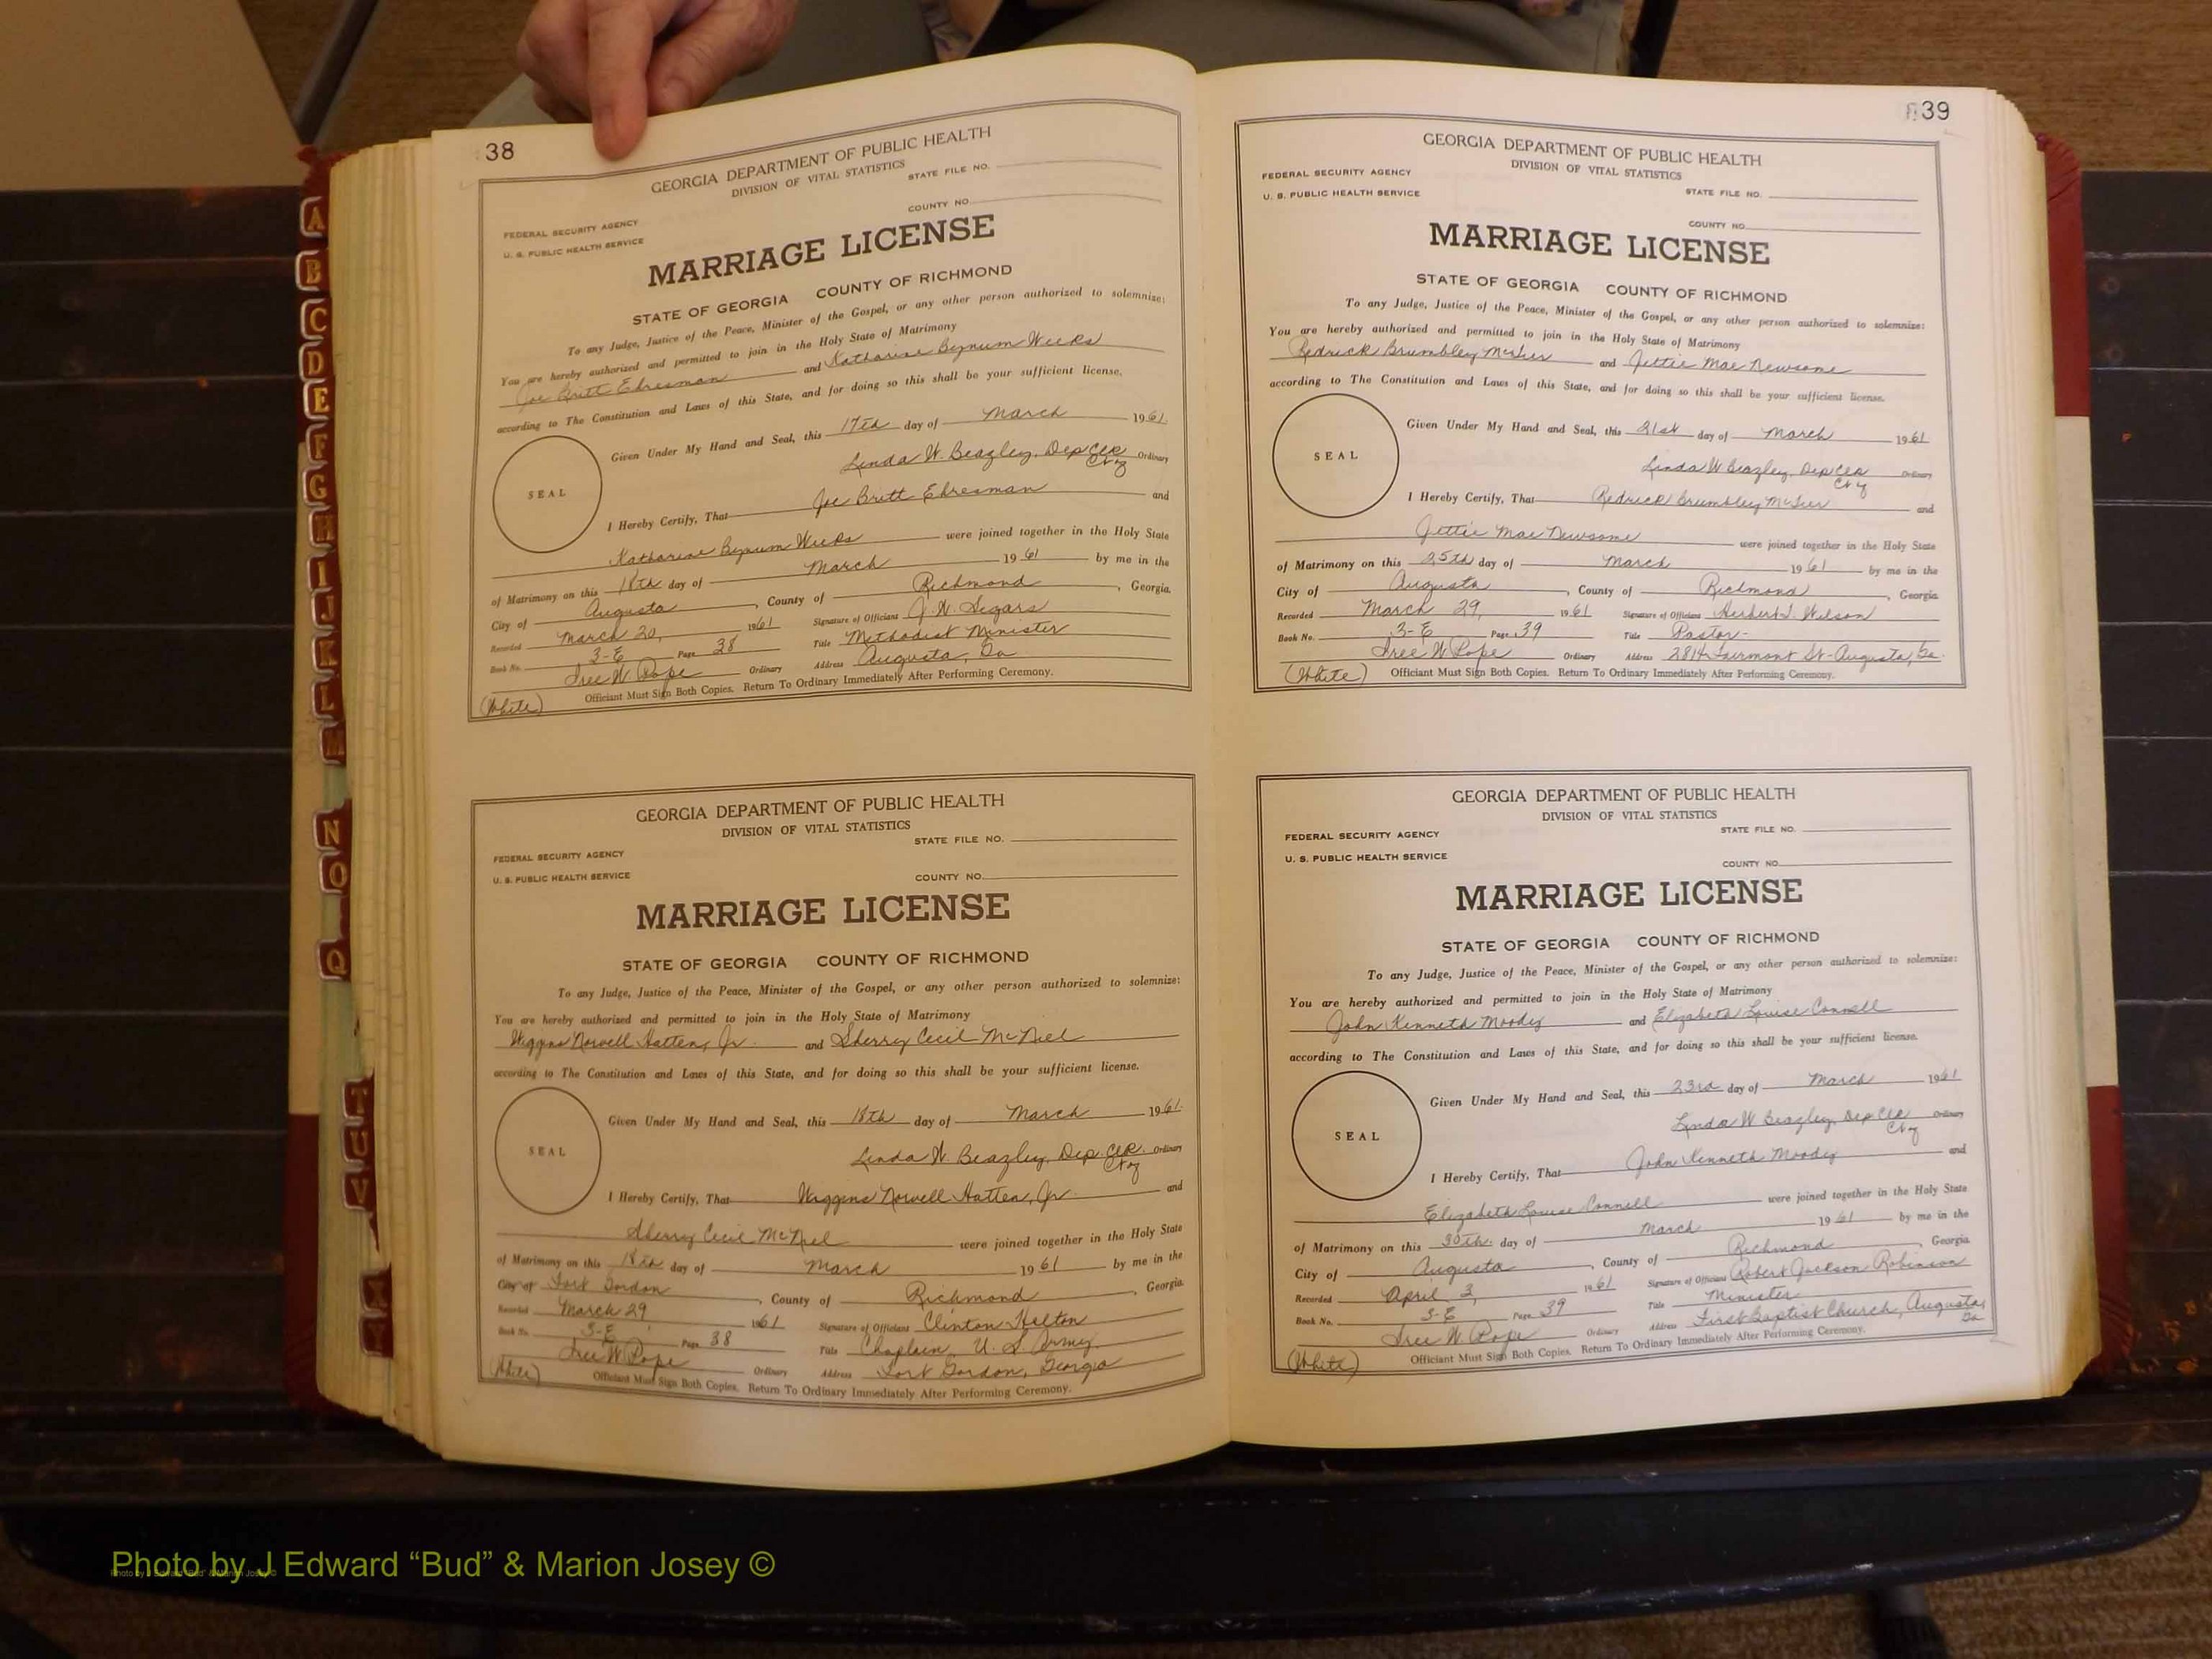 38
GEORGIA DEPARTMENT OF PUBLIC HEALTH
DIVISION OF VITAL STATISTICS
STATE FILE NO.
COUNTY NO.
FEDERAL SECURITY AGENCY
U. S. PUBLIC HEALTH SERVICE
MARRIAGE LICENSE
STATE OF GEORGIA COUNTY OF RICHMOND
To any Judge, Justice of the Peace, Minister of the Gospel, or any other person authorized to solemnize:
You are hereby authorized and permitted to join in the Holy State of Matrimony
Joe Britt Ehresman and Katharine Bynum Weeks
according to The Constitution and Laws of this State, and for doing so this shall be your sufficient license.
Given Under My Hand and Seal, this 17th day of March 1961
Linda W. Beazley, Dep Clk Ordinary
SEAL
I Hereby Certify, That Joe Britt Ehresman and
Katharine Bynum Weeks were joined together in the Holy State
of Matrimony on this 18th day of March 1961 by me in the
City of Augusta, County of Richmond, Georgia.
Recorded March 20, 1961 Signature of Officiant J. W. Segars
Book No. 3-E Page 38 Title Methodist Minister
Tree W. Pope Ordinary Address Augusta, Ga
(White) Officiant Must Sign Both Copies. Return To Ordinary Immediately After Performing Ceremony.
GEORGIA DEPARTMENT OF PUBLIC HEALTH
DIVISION OF VITAL STATISTICS
STATE FILE NO.
FEDERAL SECURITY AGENCY
U. S. PUBLIC HEALTH SERVICE
COUNTY NO.
MARRIAGE LICENSE
STATE OF GEORGIA COUNTY OF RICHMOND
To any Judge, Justice of the Peace, Minister of the Gospel, or any other person authorized to solemnize:
You are hereby authorized and permitted to join in the Holy State of Matrimony
Wiggins Norvell Hatten, Jr. and Sherry Cecil McNiel
according to The Constitution and Laws of this State, and for doing so this shall be your sufficient license.
Given Under My Hand and Seal, this 18th day of March 1961
Linda W. Beazley, Dep. Clk. Ordinary
SEAL
I Hereby Certify, That Wiggins Norvell Hatten, Jr. and
Sherry Cecil McNiel were joined together in the Holy State
of Matrimony on this 18th day of March 1961 by me in the
City of Fort Gordon, County of Richmond Georgia.
Recorded March 29 1961 Signature of Officiant Clinton Hilton
Book No. 3-E Page 38 Title Chaplain, U. S. Army
Tree W Pope Ordinary Address Fort Gordon, Georgia
(White) Officiant Must Sign Both Copies. Return To Ordinary Immediately After Performing Ceremony.
39
GEORGIA DEPARTMENT OF PUBLIC HEALTH
DIVISION OF VITAL STATISTICS
FEDERAL SECURITY AGENCY
U. S. PUBLIC HEALTH SERVICE
STATE FILE NO.
COUNTY NO.
MARRIAGE LICENSE
STATE OF GEORGIA COUNTY OF RICHMOND
To any Judge, Justice of the Peace, Minister of the Gospel, or any other person authorized to solemnize:
You are hereby authorized and permitted to join in the Holy State of Matrimony
Redrick Brumbley McTier and Jettie Mae Newsome
according to The Constitution and Laws of this State, and for doing so this shall be your sufficient license.
Given Under My Hand and Seal, this 21st day of March 1961
Linda W Beazley, Dep Clk Ordinary
SEAL
I Hereby Certify, That Redrick Brumbley McTier and
Jettie Mae Newsome were joined together in the Holy State
of Matrimony on this 25th day of March 1961 by me in the
City of Augusta, County of Richmond, Georgia.
Recorded March 29, 1961 Signature of Officiant Herbert J. Wilson
Book No. 3-E Page 39 Title Pastor-
Tree W Pope Ordinary Address 2814 Fairmont St-Augusta, Ga.
(White) Officiant Must Sign Both Copies. Return To Ordinary Immediately After Performing Ceremony.
GEORGIA DEPARTMENT OF PUBLIC HEALTH
DIVISION OF VITAL STATISTICS
STATE FILE NO.
FEDERAL SECURITY AGENCY
U. S. PUBLIC HEALTH SERVICE
COUNTY NO.
MARRIAGE LICENSE
STATE OF GEORGIA COUNTY OF RICHMOND
To any Judge, Justice of the Peace, Minister of the Gospel, or any other person authorized to solemnize:
You are hereby authorized and permitted to join in the Holy State of Matrimony
John Kenneth Moody and Elizabeth Louise Connell
according to The Constitution and Laws of this State, and for doing so this shall be your sufficient license.
Given Under My Hand and Seal, this 23rd day of March 1961
Linda W Beazley, Dep Clk Ordinary
SEAL
I Hereby Certify, That John Kenneth Moody and
Elizabeth Louise Connell were joined together in the Holy State
of Matrimony on this 30th. day of March 1961 by me in the
City of Augusta, County of Richmond Georgia.
Recorded April 3, 1961 Signature of Officiant Robert Jackson Robinson
Book No. 3-E Page 39 Title Minister
Tree W. Pope Ordinary Address First Baptist Church, Augusta, Ga
(White) Officiant Must Sign Both Copies. Return To Ordinary Immediately After Performing Ceremony.
A
B
C
D
E
F
G
H
I
J
K
L
M
N
O
Q
T
U
V
Photo by J Edward “Bud” & Marion Josey ©
Photo by J Edward "Bud" & Marion Josey ©